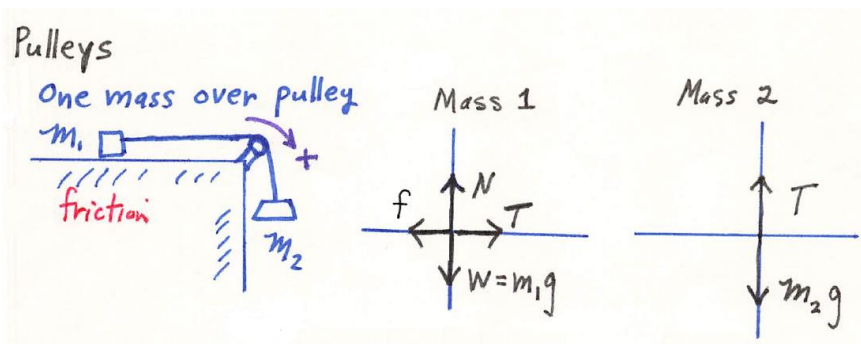 Pulleys
One mass over pulley
m₁
+
friction
m₂
Mass 1
N
f
T
W=m₁g
Mass 2
T
m₂g